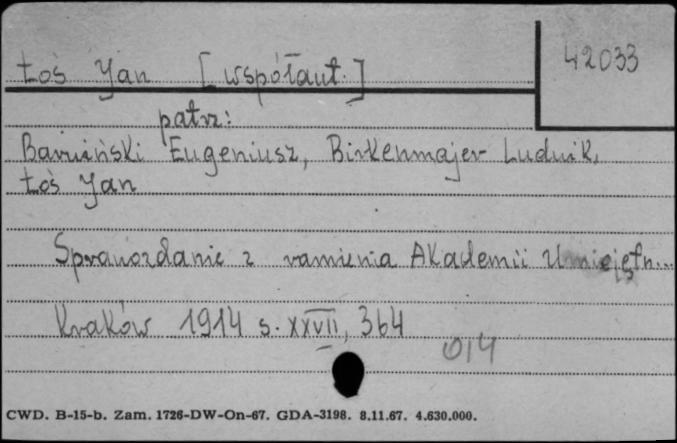 Łoś Jan [współaut.]
42033
patrz:
Barwiński Eugeniusz, Birkenmajer Ludwik,
Łoś Jan
Sprawozdanie z ramienia Akademii Umiejętn...
Kraków 1914 s. XXVII, 364
014
CWD. B-15-b. Zam. 1726-DW-On-67. GDA-3198. 8.11.67. 4.630.000.